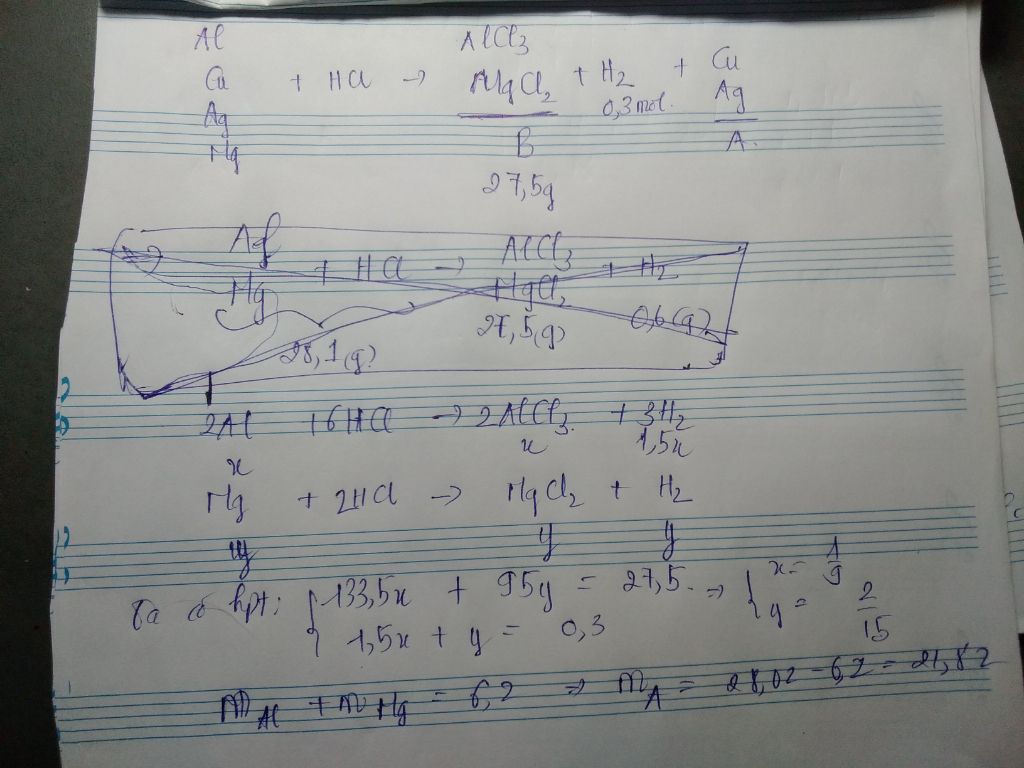 Al AlCl3
Cu + HCl → MgCl2 + H2 + Cu
Ag 0,3 mol. Ag
Mg B A.
27,5g
AlCl3
Mg + HCl → MgCl2 + H2
28,1(g) 27,5(g) 0,6(g)
2Al + 6HCl → 2AlCl3 + 3H2
x x 1,5x
Mg + 2HCl → MgCl2 + H2
y y y
Ta có hpt: { 133,5x + 95y = 27,5 → { x = 1/9
1,5x + y = 0,3 y = 2/15
mAl + mMg = 6,2 ⇒ mA = 28,02 - 6,2 = 21,82